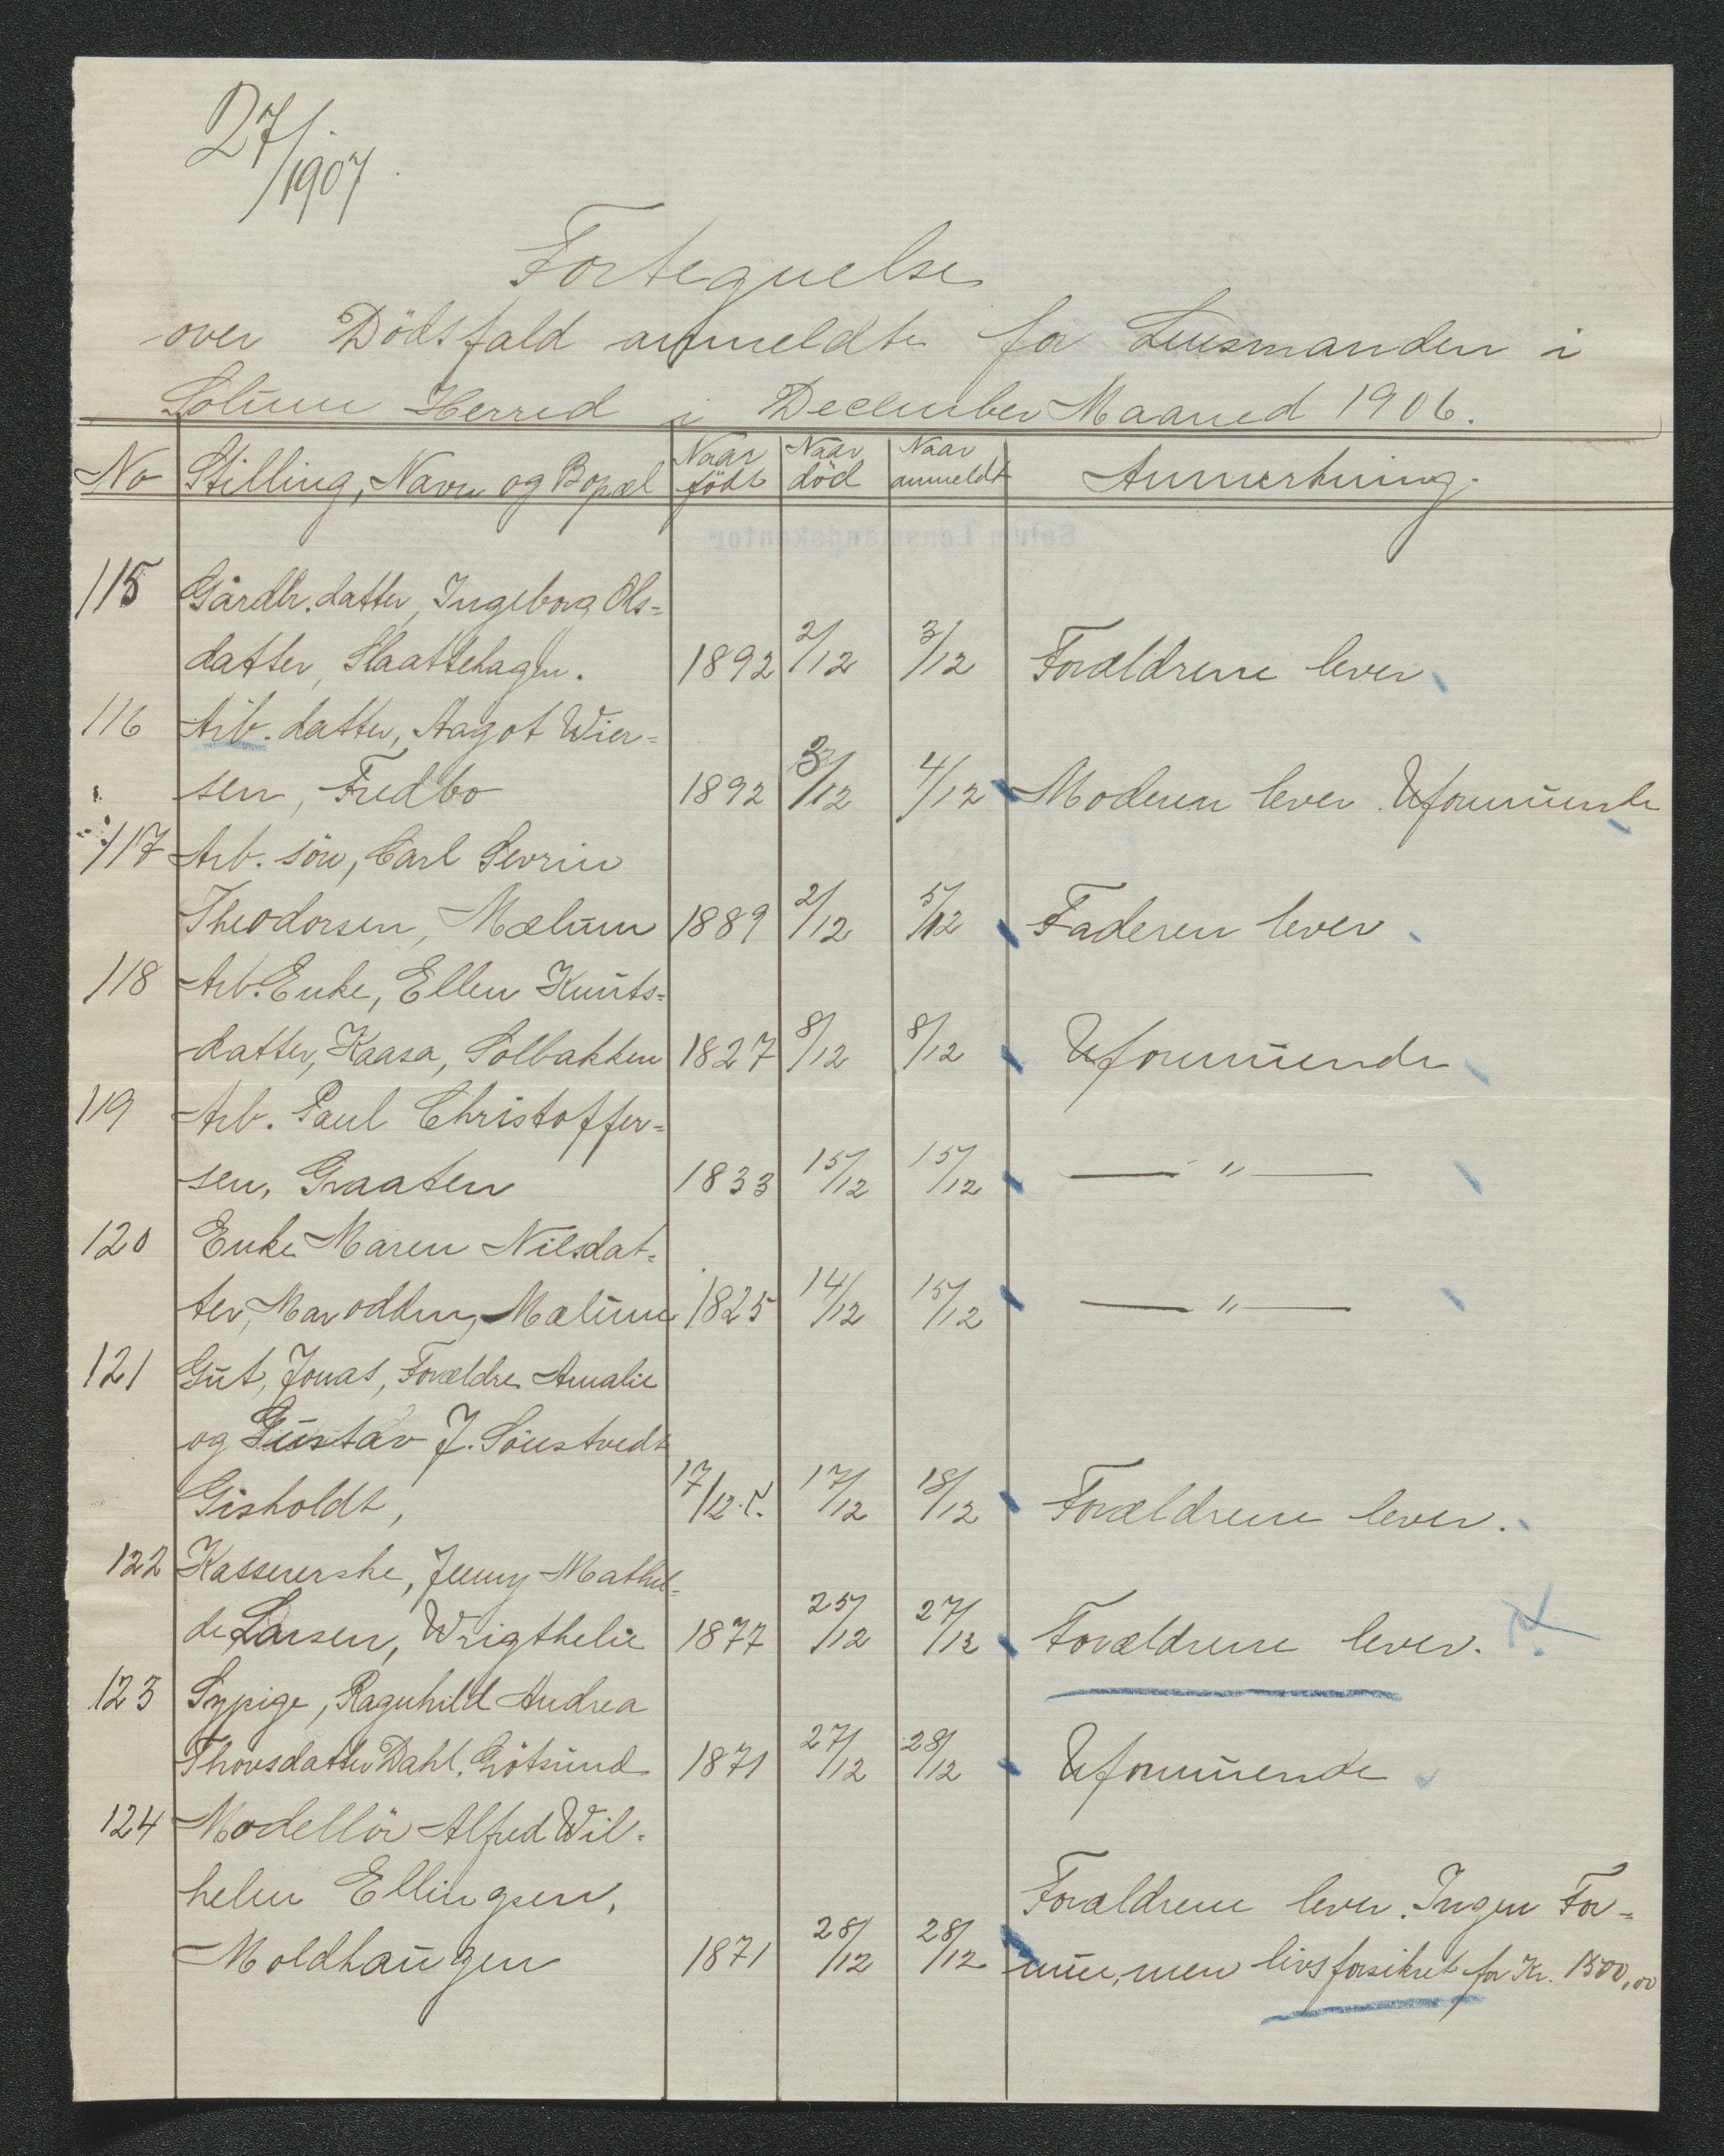 27/1907.
Fortegnelse
over Dödsfald anmeldte for Lensmanden i
Solum Herred i December Maaned 1906.
No Stilling, Navn og Bopæl Naar födt Naar död Naar anmeldt Anmerkning.
115 Gårdbr. datter, Ingeborg Ols=
datter, Slaattehagen. 1892 2/12 3/12 Forældrene lever
116 Arb. datter, Aagot Wier=
sen, Fredbo 1892 3/12 4/12 Moderen lever. Uformuende
117 Arb. sön, Carl Sevrin
Theodorsen, Mælum 1889 2/12 5/12 Faderen lever
118 Arb. Enke, Ellen Knuts=
datter, Kaasa, Solbakken 1827 8/12 8/12 Uformuende
119 Arb. Paul Christoffer=
sen, Graaten 1833 15/12 15/12 — " —
120 Enke Maren Nilsdat=
ter, Marodden, Mælum 1825 14/12 15/12 — " —
121 Gut, Jonas, Forældre Amalie
og Gustav J. Sönstvedt
Gisholdt, 17/12 17/12 18/12 Forældrene lever.
122 Kassererske, Jenny Mathil=
de Larsen, Wrigthelie 1877 25/12 27/12 Forældrene lever.
123 Sypige, Ragnhild Andrea
Thovsdatter Dahl, Grötsund 1871 27/12 28/12 Uformuende
124 Modellör Alfred Wil=
helm Ellingsen, Forældrene lever. Ingen For=
Moldhaugen 1871 28/12 28/12 mue, men livsforsikret for Kr. 1500,00